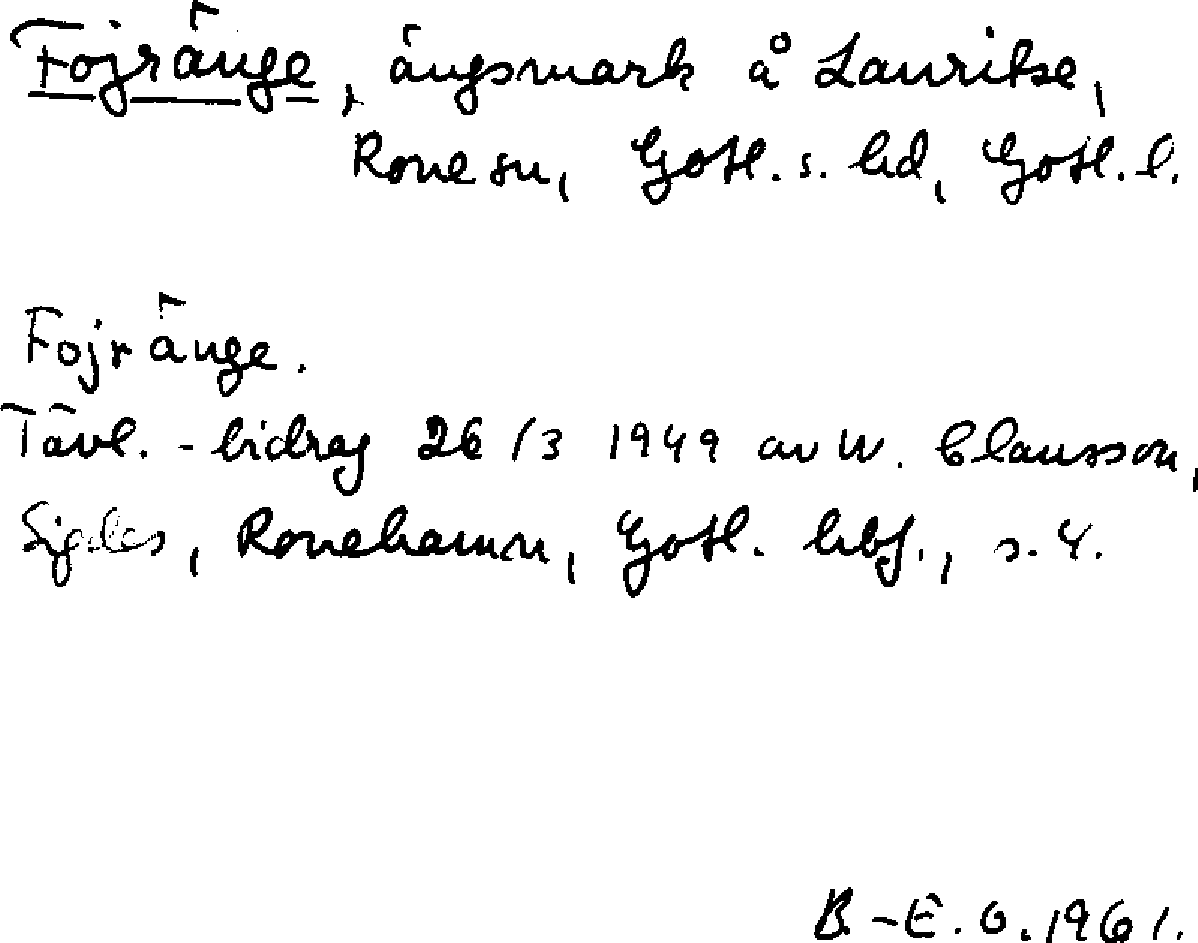 Fojränge, ängsmark å Lauritse,
Rone sn, Gotl. s. hd, Gotl. l.
Fojränge.
Tävl.-bidrag 26/3 1949 av W. Clausson,
Sigdes, Ronehamn, Gotl. hbf., s. 4.
B.-E. O. 1961.